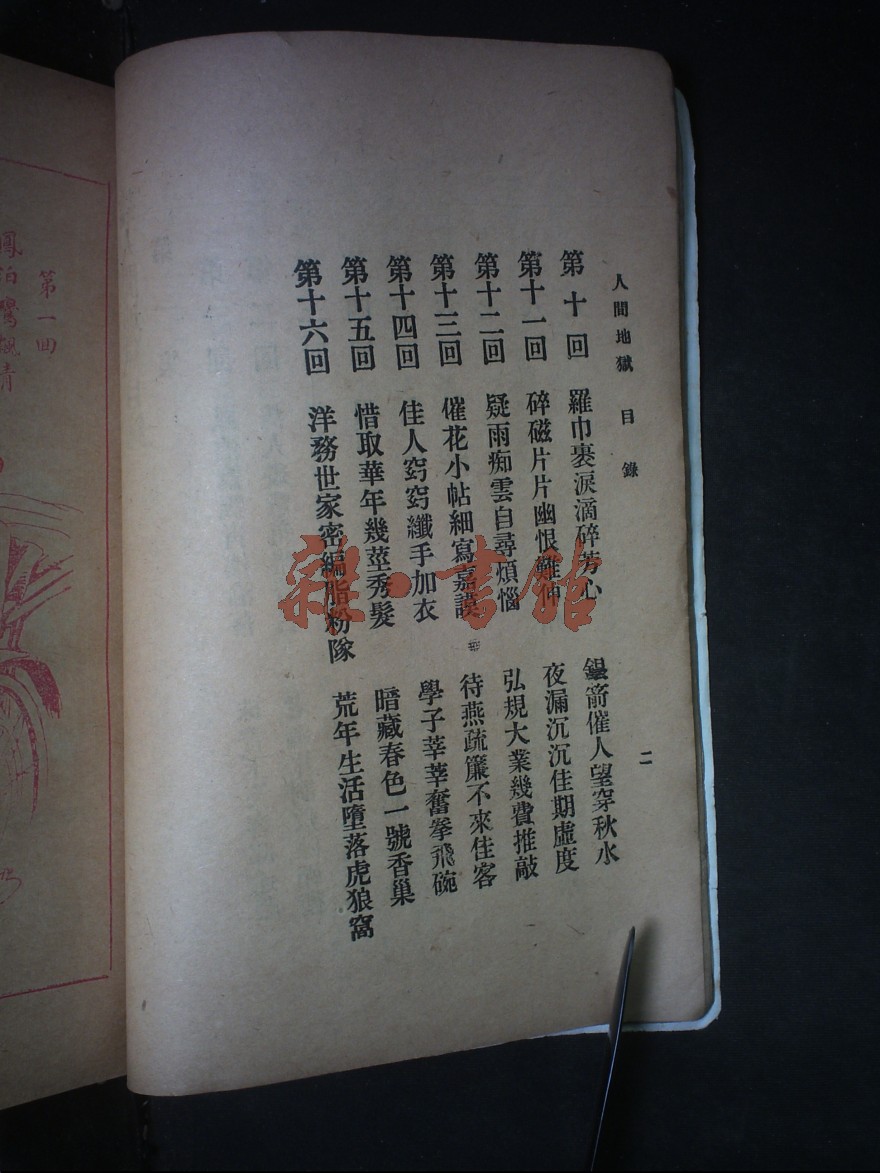 人間地獄 目錄
二
第十回 羅巾裹淚滴碎芳心 銀箭催人望穿秋水
第十一回 碎磁片片幽恨難伸 夜漏沉沉佳期虛度
第十二回 疑雨痴雲自尋煩惱 弘規大業幾費推敲
第十三回 催花小帖細寫嘉謨 待燕疏簾不來佳客
第十四回 佳人窈窈纖手加衣 學子莘莘奮拳飛碗
第十五回 惜取華年幾莖秀髮 暗藏春色一號香巢
第十六回 洋務世家密編脂粉隊 荒年生活墮落虎狼窩
雜·書館
第一回
鳳泊鸞飄青